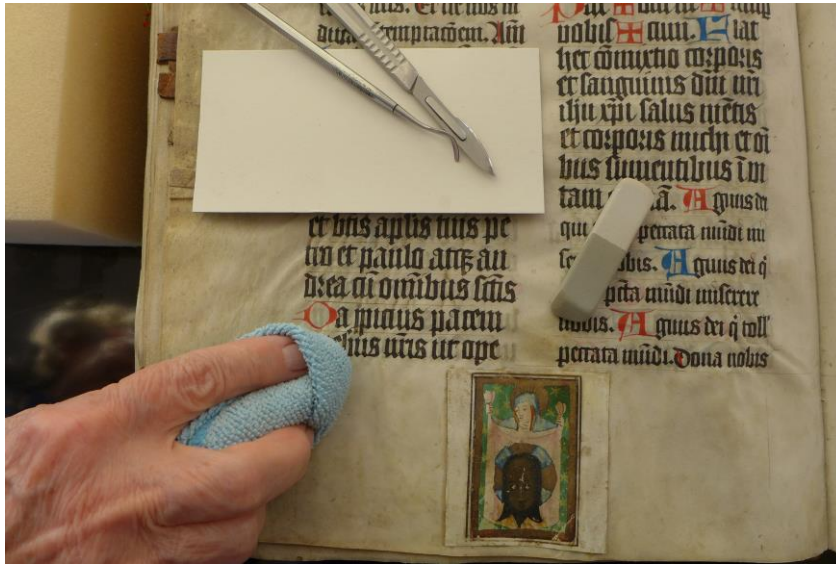 Et ne nos in
temptacōem. Am̄
et btis aplis tuis pe
tro et paulo atqꝫ an
drea cū omībus sctis
Da ꝓpicius pacem
nr̄is ut ope
vobis ✠ cum. Fiat
hec cōmixtio corporis
et sanguinis dn̄i nr̄i
ihu xp̄i salus mētis
et corporis michi et oī
bus sumentibus ī
tam Agnus dei
qui peccata mūdi mi
Agnus dei q̄
pctā mūdi miserere
nobis. Agnus dei q̄ toll'
peccata mūdi. Dona nobis